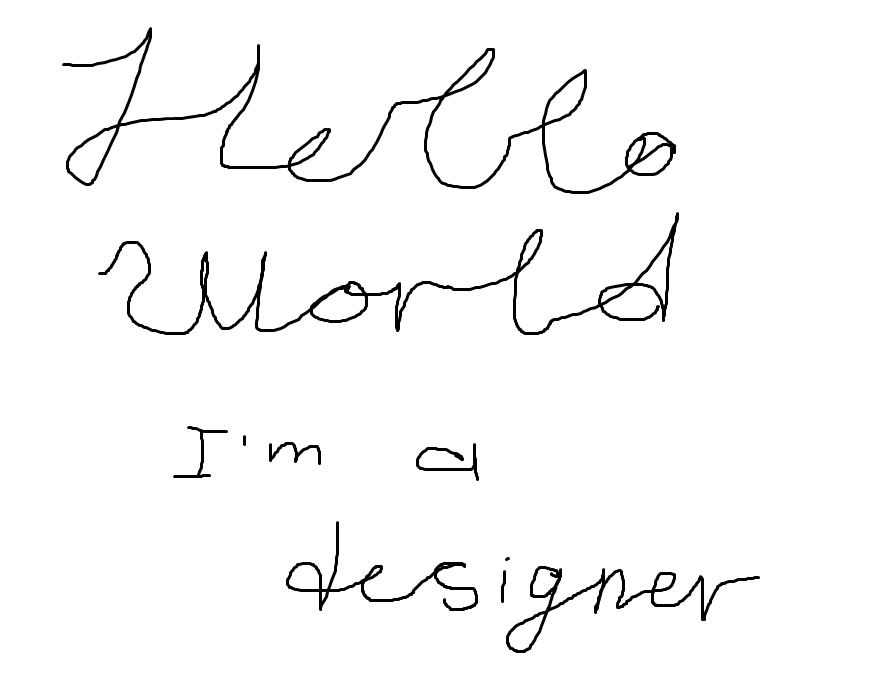 Hello
World
I'm a
designer